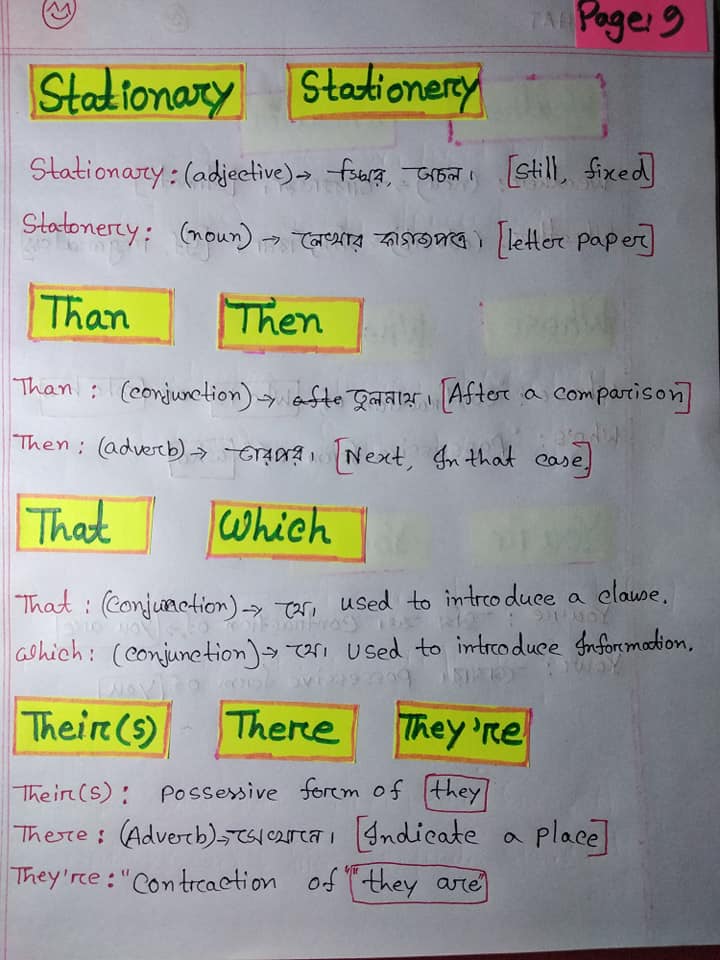 Page: 9
Stationary Stationery
Stationary: (adjective)→ স্থির, অচল। [still, fixed]
Statonery: (noun) → লেখার কাগজপত্র। [letter paper]
Than Then
Than : (conjunction)→ তুলনায়। [After a comparison]
Then : (adverb)→ তারপর। [Next, In that case.]
That Which
That : (Conjunction)→ যে। used to introduce a clause.
Which : (conjunction)→ যে। used to introduce Information.
Their(s) There They're
Their(s) : Possessive form of they
There : (Adverb)→ সেখানে। [Indicate a place]
They're : "Contraction of "they are"